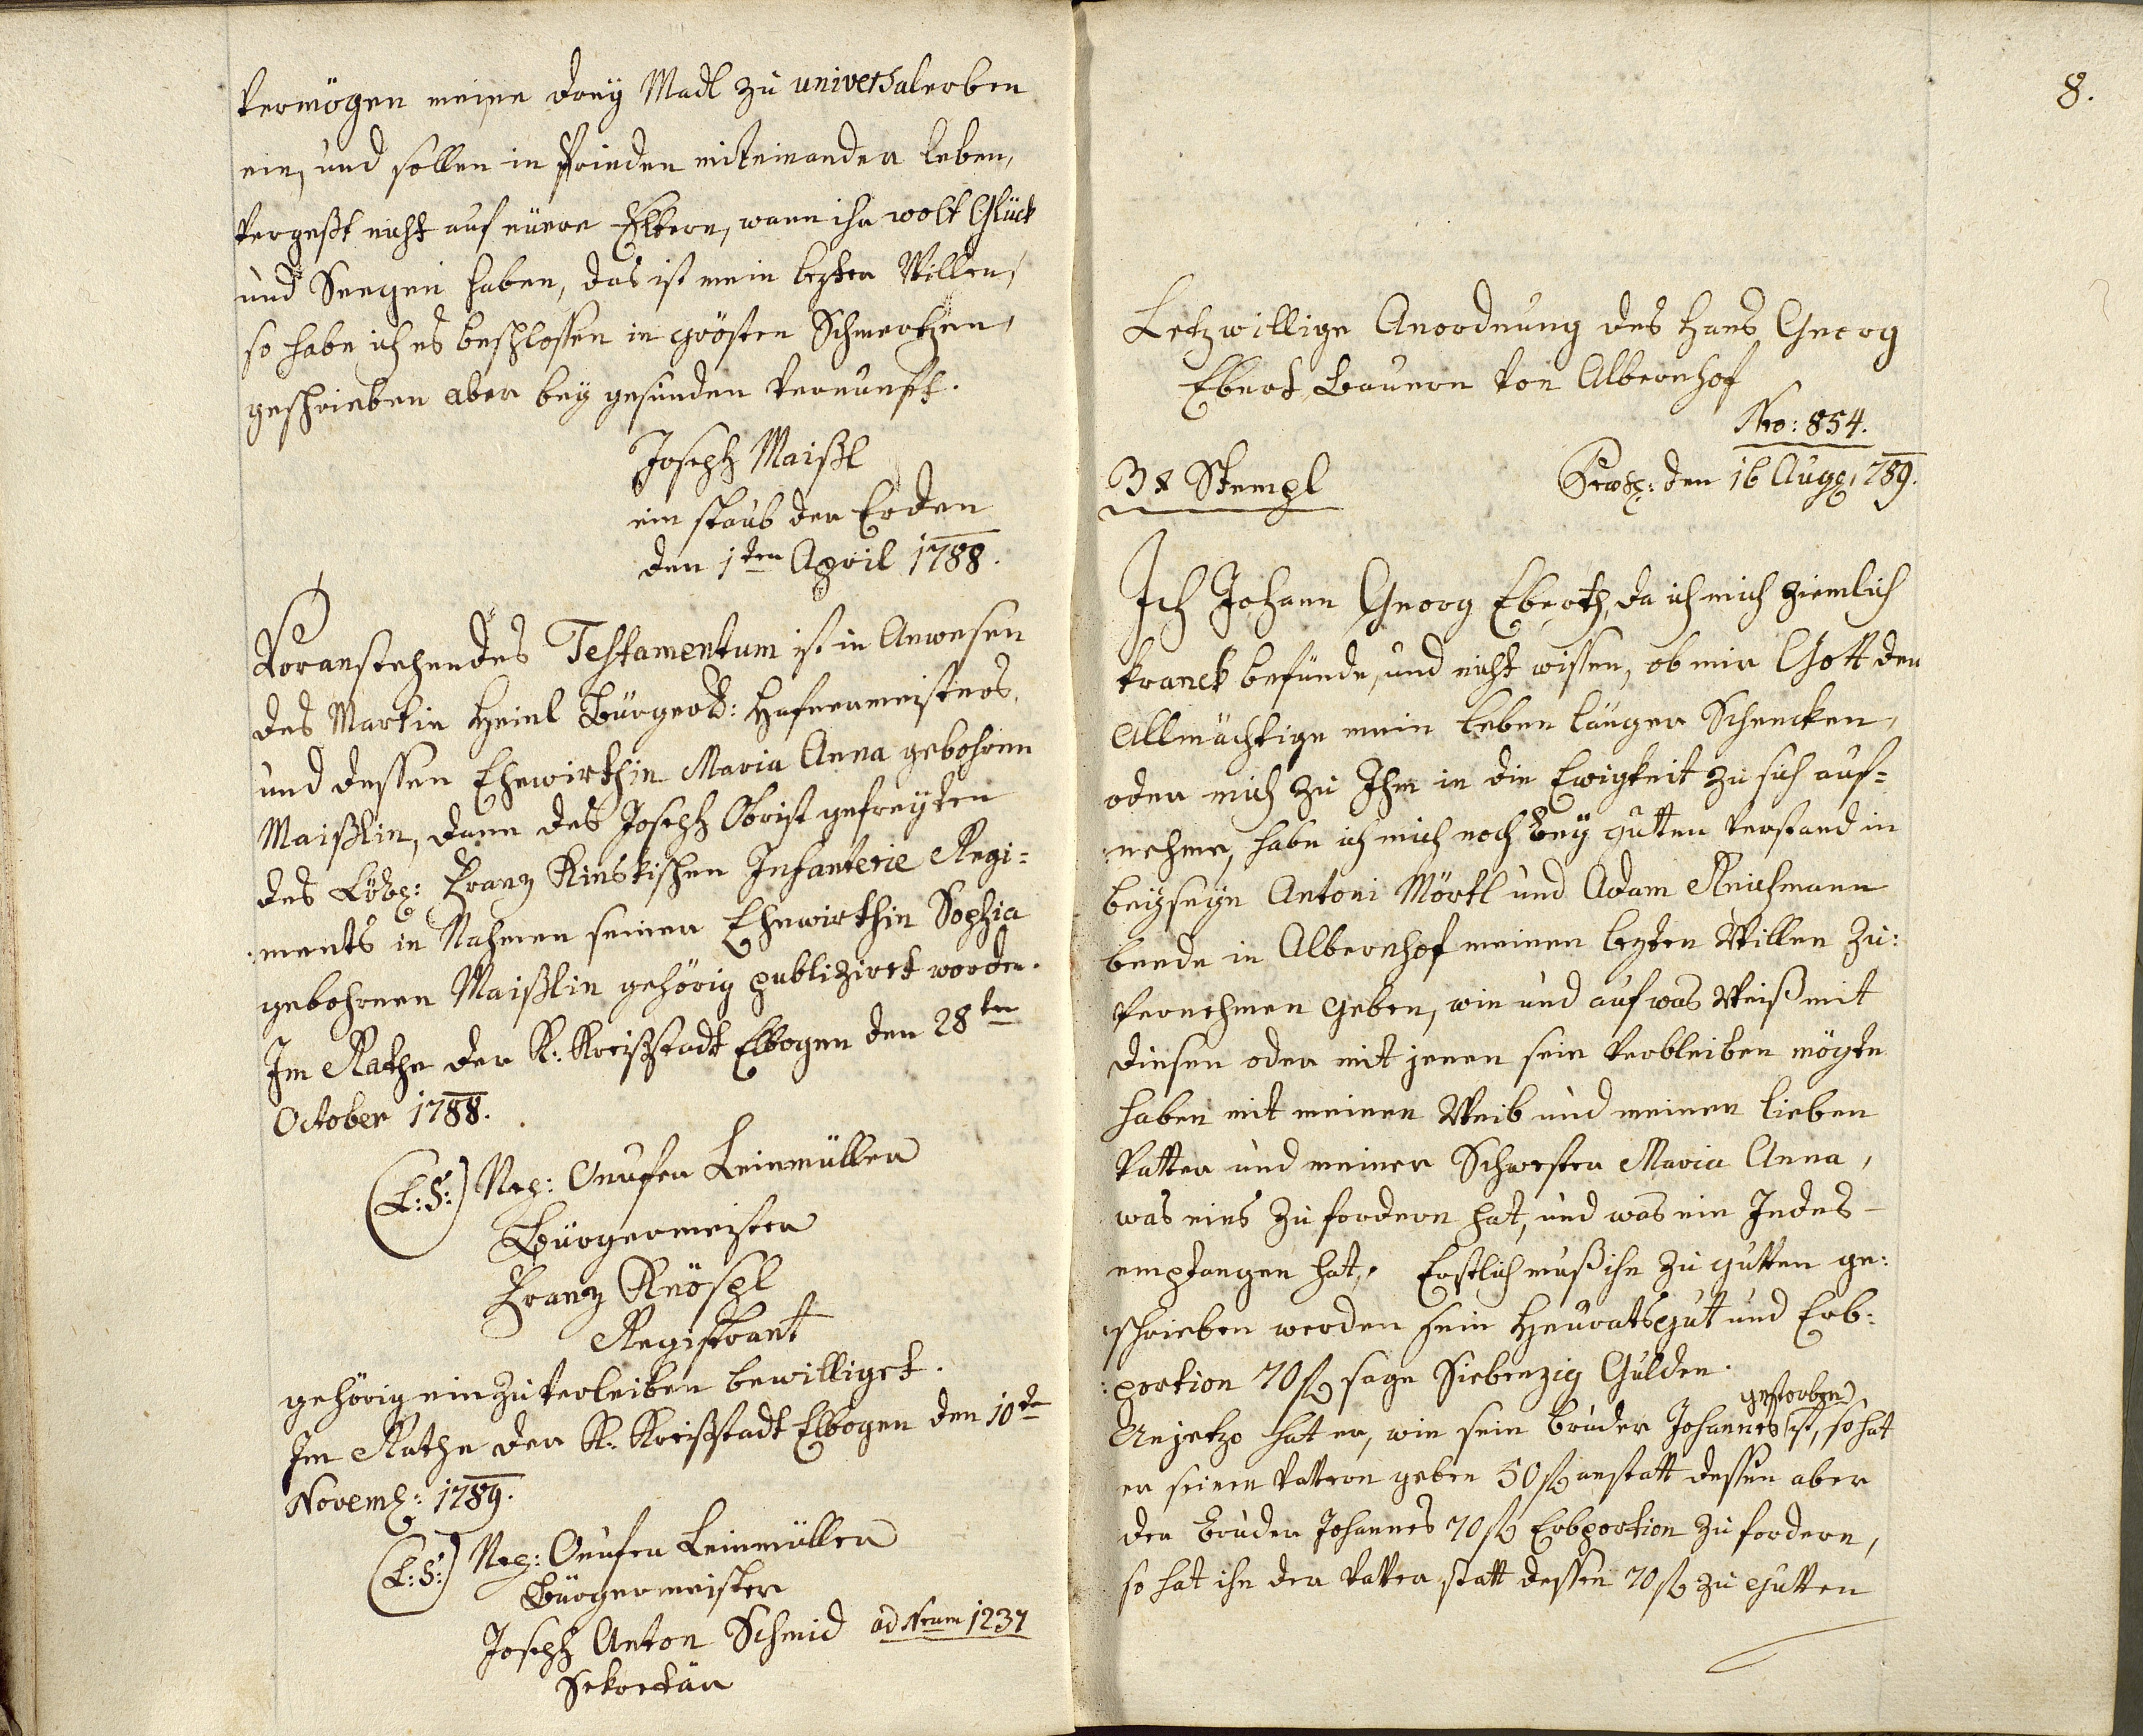 vermögen meine dreÿ Madl zu universalerben
ein, und sollen in Frieden miteinander leben,
vergeßt nicht auf eüere Eltern, wann ihr wolt Glück
und Seegen haben, das ist mein lezter Willen,
so habe ich es beschlossen in grösten Schmertzen,
geschrieben aber beÿ gesunden Vernunft.
Joseph Maißl
ein staub der Erden
den 1ten April 1788.
Voranstehendes Testamentum ist in Anwesen
des Martin Heinl Bürgerl: Hafnermeisters,
und dessen Ehewirthin Maria Anna gebohrnen
Maißlin, dann des Joseph Obrist gefreÿten
des Löbl: Franz Kinskischen Infanterie Regi=
ments in Nahmen seiner Ehewirthin Sophia
gebohrnen Maißlin gehörig publizirt worden.
Im Rathe der K: Kreißstadt Elbogen den 28ten
October 1788.
(L:S:) Neg: Onufer Leinmüller
Bürgermeister
Franz Knöspl
Registrant
gehörig einzuverleiben bewilliget.
Im Rathe der K: Kreißstadt Elbogen den 10te
Novemb: 1789.
(L:S:) Neg: Onufer Leinmüller
Bürgermeister
Joseph Anton Schmid ad Nrum 1237
Sekretär
8.
Letzwillige Anordnung des Hans Georg
Ebert Bauern von Albernhof
Nro: 854.
3 x Stempl
den 16 Aug: 1789.
Ich Johann Georg Eberth, da ich mich ziemlich
kranck befünde, und nicht wissen, ob mir Gott der
Allmächtige mein leben länger Schencken,
oder mich zu Ihm in die Ewigkeit zu sich auf=
nehme, habe ich mich noch beÿ gutten verstand in
beÿseÿn Antoni Mörtl und Adam Reichmann
beede in Albernhof meinen lezten Willen zu:
vernehmen geben, wie und auf was Weiß mit
diesen oder mit jenen sein verbleiben mögte
haben mit meinen Weib und meinen lieben
Vatter und meiner Schwester Maria Anna,
was eins zu fordern hat, und was ein Jedes
empfangen hat. Erstlich muß ihr zu gutten ge:
schrieben werden sein Heüratsgut und Erb:
:portion 70 fl sage Siebenzig Gulden.
gestorben
Anjetzo hat er, wie sein bruder Johannes ist, so hat
er seinen vattern geben 50 fl anstatt dessen aber
der bruder Johannes 70 fl Erbportion zu fordern,
so hat ihr der vatter statt dessen 70 fl zu gutten